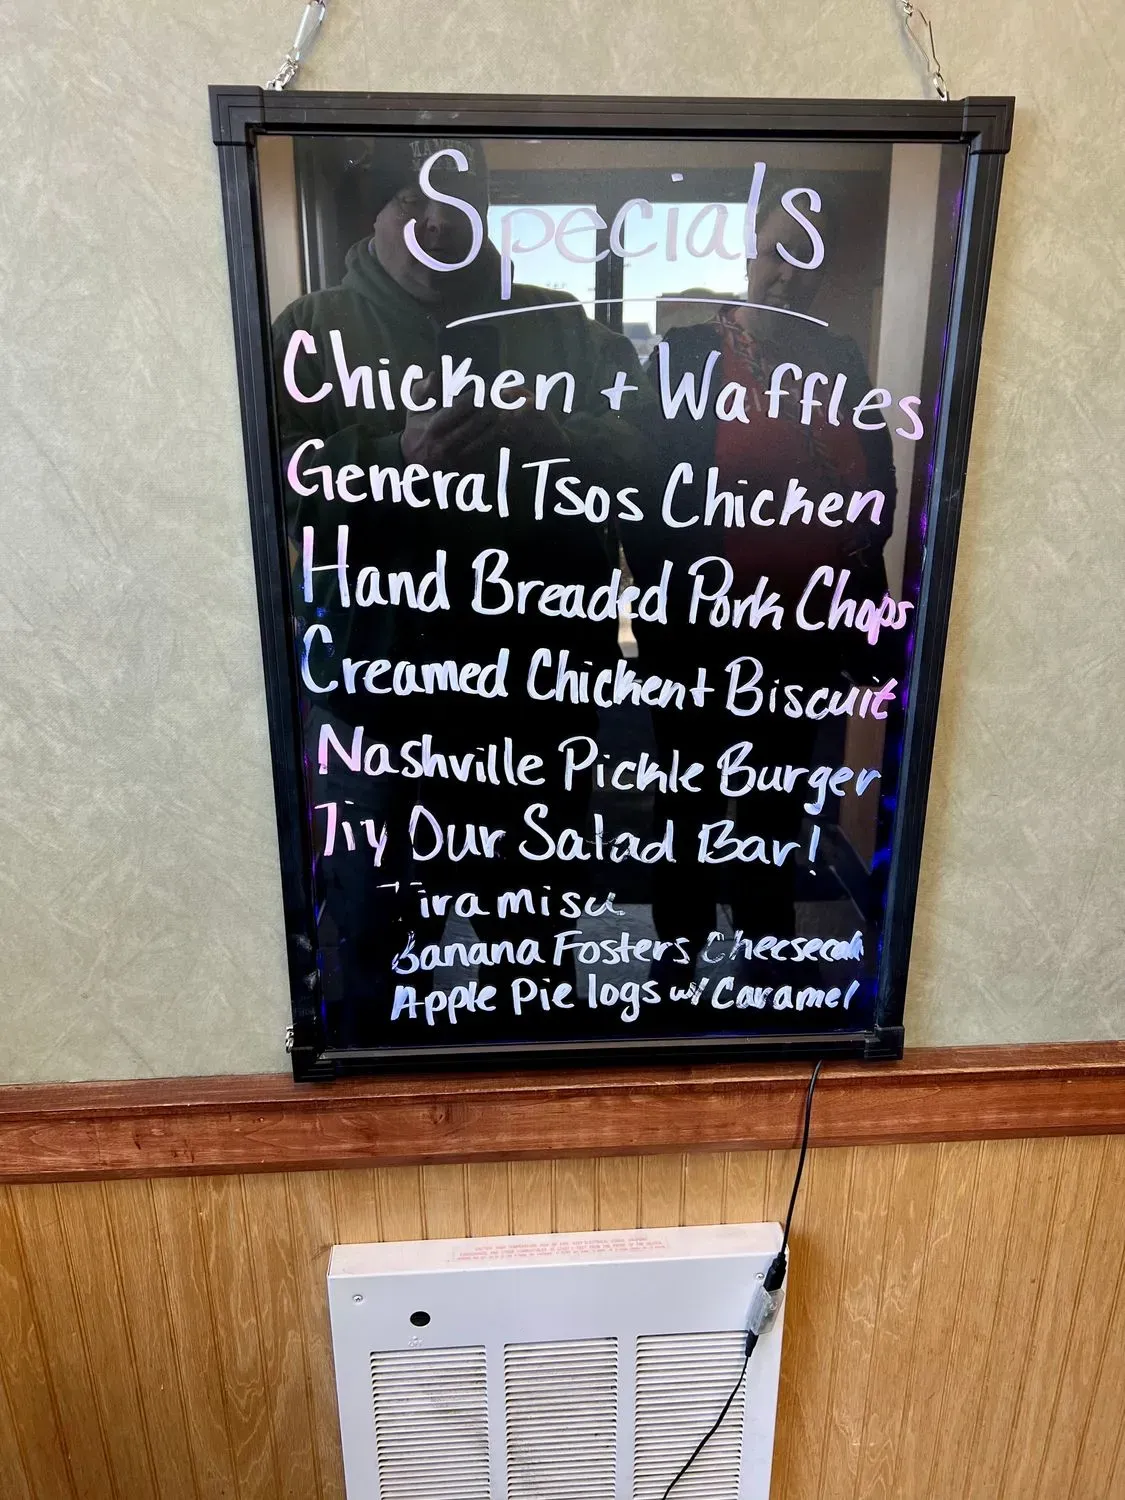 Specials
Chicken + Waffles
General Tsos Chicken
Hand Breaded Pork Chops
Creamed Chicken + Biscuit
Nashville Pickle Burger
Try Our Salad Bar!
Tiramisu
Banana Fosters Cheesecake
Apple Pie logs w/ Caramel